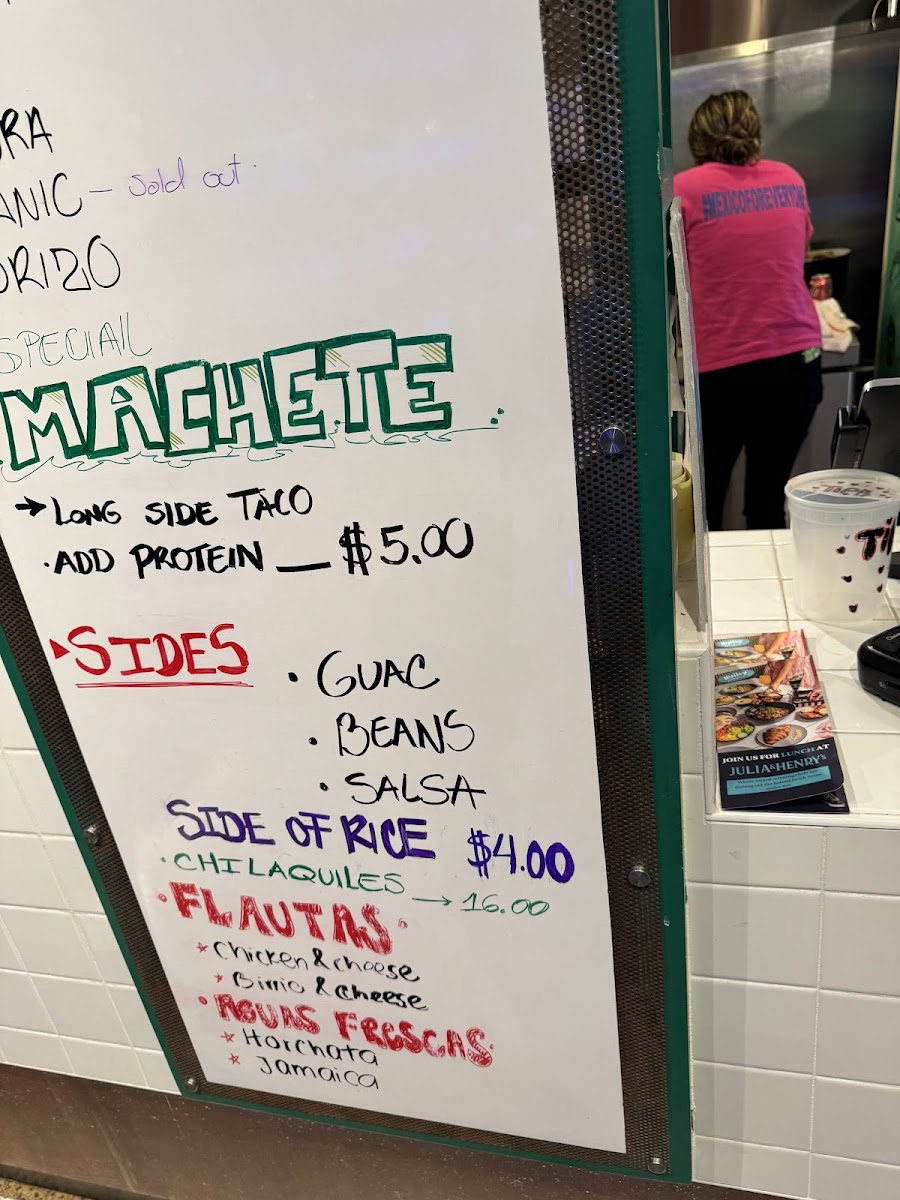 RA
ANIC - Sold out.
ORIZO
SPECIAL
MACHETE
→ LONG SIDE TACO
· ADD PROTEIN — $5.00
SIDES
· GUAC
· BEANS
· SALSA
SIDE OF RICE $4.00
· CHILAQUILES → 16.00
· FLAUTAS ·
* Chicken & cheese
* Birria & cheese
· AGUAS FRESCAS
☆ Horchata
☆ Jamaica
#MEXICOFOREVERYONE
Ti
JOIN US FOR LUNCH AT
JULIA & HENRY's